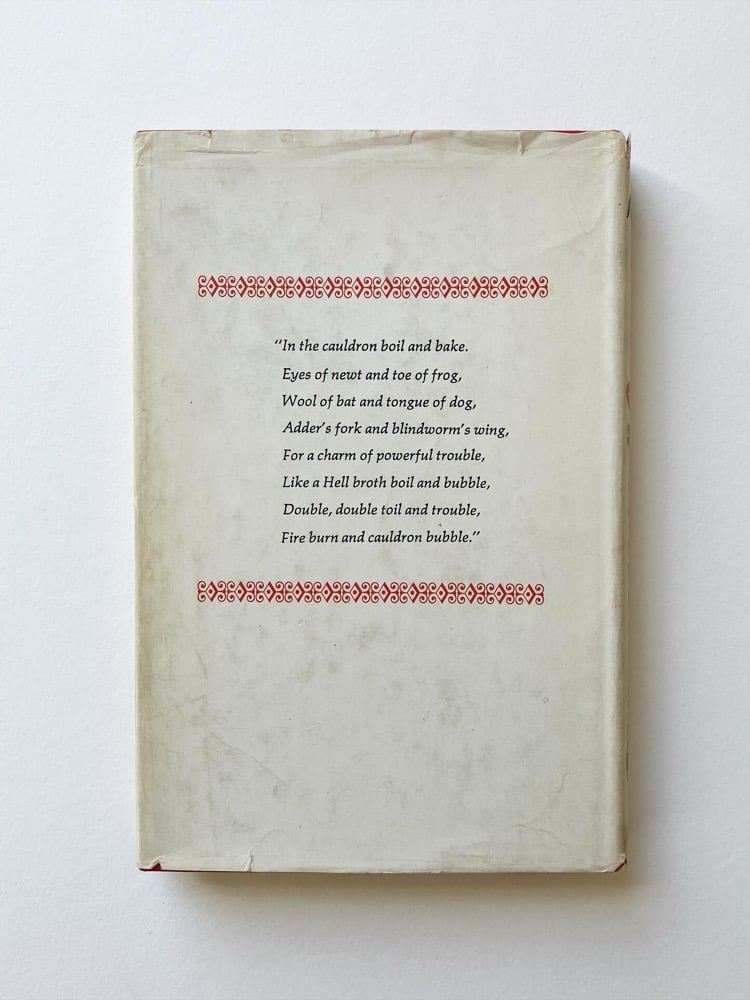 “In the cauldron boil and bake.
Eyes of newt and toe of frog,
Wool of bat and tongue of dog,
Adder’s fork and blindworm’s wing,
For a charm of powerful trouble,
Like a Hell broth boil and bubble,
Double, double toil and trouble,
Fire burn and cauldron bubble.”